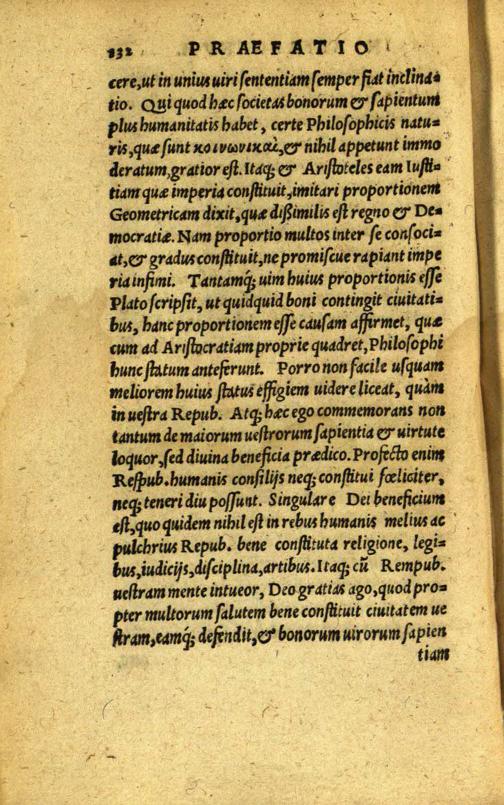 232 PRAEFATIO
cere, ut in unius uiri sententiam semper fiat inclina=
tio. Qui quod hæc societas bonorum & sapientum
plus humanitatis habet, certe Philosophicis natu=
ris, quæ sunt κοινωνικαὶ, & nihil appetunt immo
deratum, gratior est. Itaq; & Aristoteles eam Iusti=
tiam quæ imperia constituit, imitari proportionem
Geometricam dixit, quæ dißimilis est regno & De=
mocratiæ. Nam proportio multos inter se consoci=
at, & gradus constituit, ne promiscue rapiant impe
ria infimi. Tantamq́; uim huius proportionis esse
Plato scripsit, ut quidquid boni contingit ciuitati=
bus, hanc proportionem esse causam affirmet, quæ
cum ad Aristocratiam proprie quadret, Philosophi
hunc statum anteferunt. Porro non facile usquam
meliorem huius status effigiem uidere liceat, quàm
in uestra Repub. Atq; hæc ego commemorans non
tantum de maiorum uestrorum sapientia & uirtute
loquor, sed diuina beneficia prædico. Profecto enim
Respub. humanis consilijs neq; constitui fœliciter,
neq; teneri diu possunt. Singulare Dei beneficium
est, quo quidem nihil est in rebus humanis melius ac
pulchrius Repub. bene constituta religione, legi=
bus, iudicijs, disciplina, artibus. Itaq; cũ Rempub.
uestram mente intueor, Deo gratias ago, quod pro=
pter multorum salutem bene constituit ciuitatem ue
stram, eamq́; defendit, & bonorum uirorum sapien
tiam